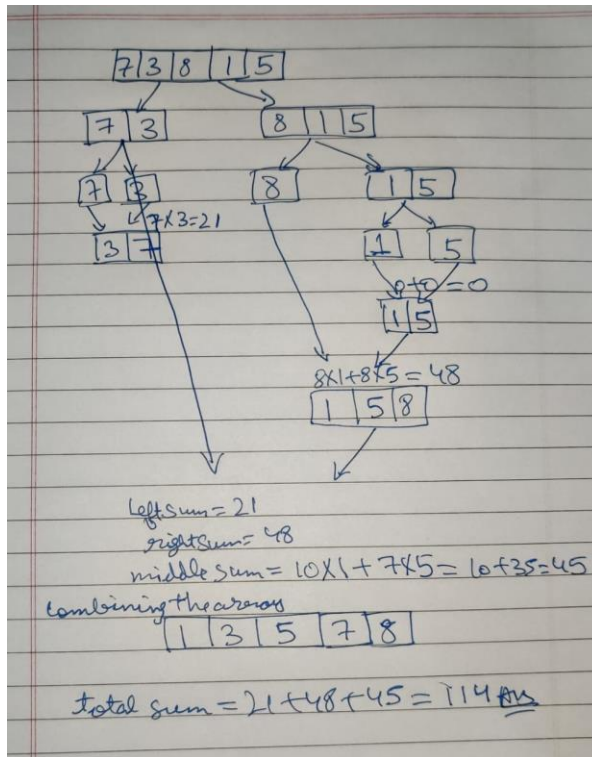 7 3 8 1 5
7 3 8 1 5
7 3 8 1 5
7×3=21
3 7 1 5
0+0=0
1 5
8×1+8×5=48
1 5 8
left sum = 21
right sum = 48
middle sum = 10×1 + 7×5 = 10+35=45
combining the arrays
1 3 5 7 8
total sum = 21+48+45 = 114 Ans